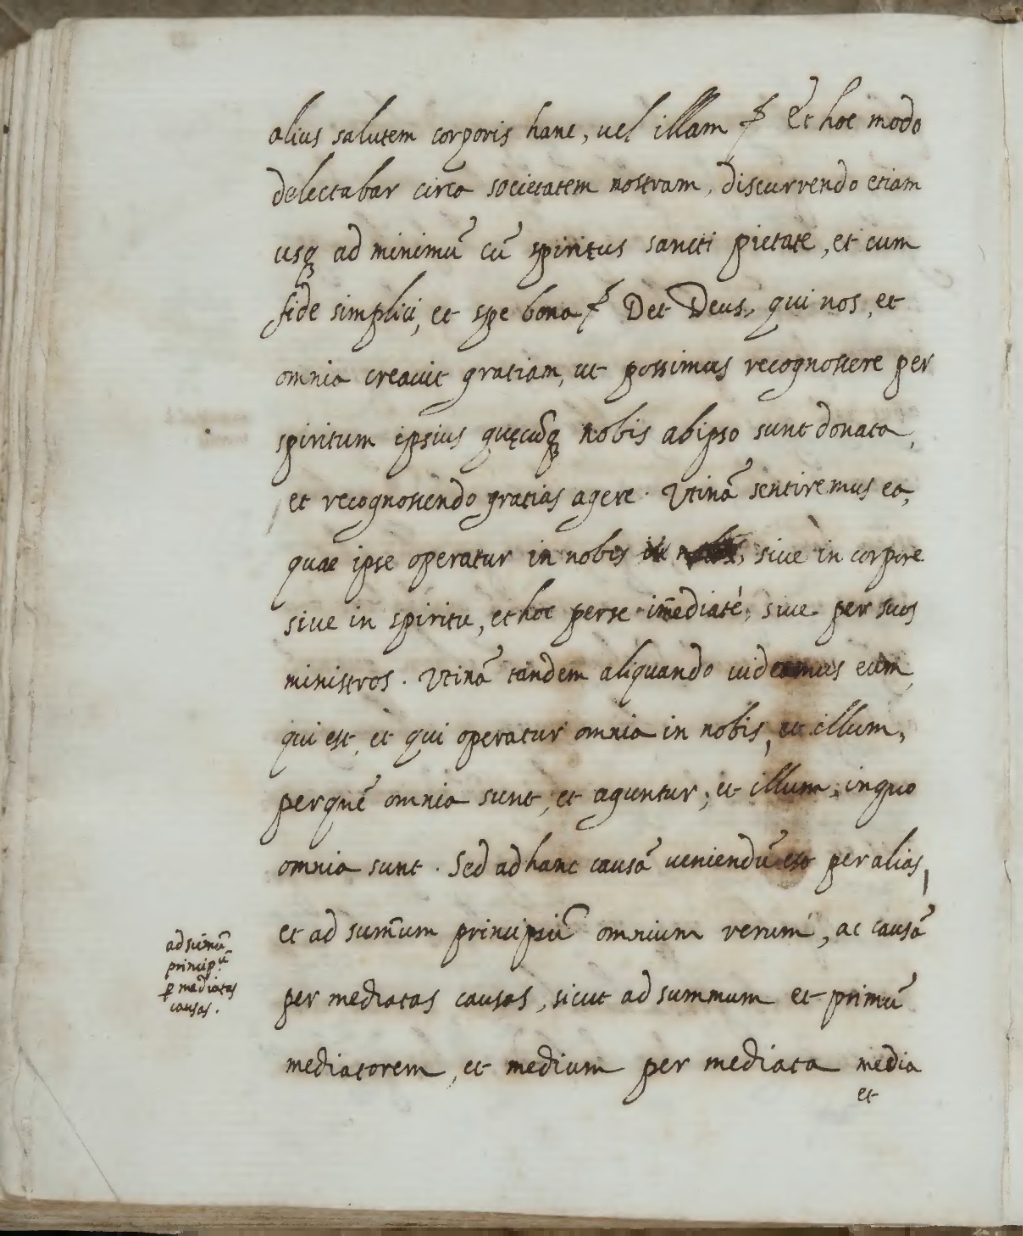 alius salutem corporis hanc, vel illam ꝭ Et hoc modo
delectabar circa societatem nostram, discurrendo etiam
usqꝫ ad minimū cū spiritus sancti pietate, et cum
fide simplici, et spe bona ꝭ Det Deus, qui nos, et
omnia creavit gratiam, ut possimus recognoscere per
spiritum ipsius quęcūqꝫ nobis ab ipso sunt donata,
et recognoscendo gratias agere. Utinā sentiremus ea,
quae ipse operatur in nobis, sive in corpore
sive in spiritu, et hoc per se im̄ediaté, sive per suos
ministros. Utinā tandem aliquando videamus eum,
qui est, et qui operatur omnia in nobis, et illum,
per quē omnia sunt, et aguntur, et illum, in quo
omnia sunt. Sed ad hanc causā veniendū est per alias,
et ad sum̄um principiū omnium rerum, ac causā
per mediatas causas, sicut ad summum et primū
mediatorem, et medium per mediata media
et
ad sum̄ū
principū
ꝑ mediatas
causas.